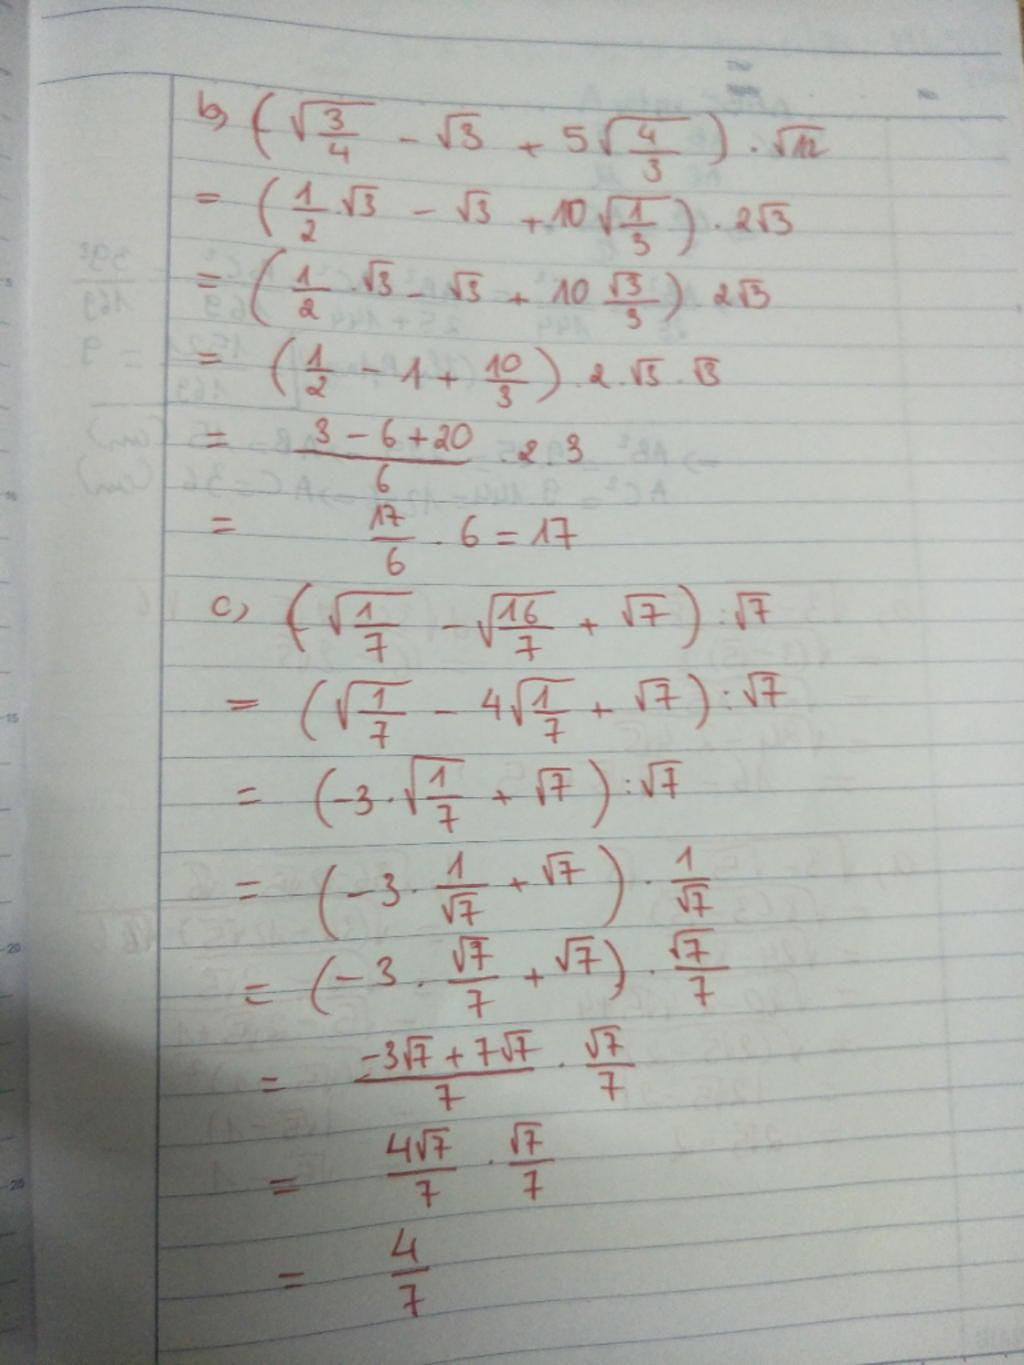 b, (√(3/4) - √3 + 5√(4/3)) . √12
= (1/2 . √3 - √3 + 10√(1/3)) . 2√3
= (1/2 . √3 - √3 + 10 √3/3) . 2√3
= (1/2 - 1 + 10/3) . 2 . √3 . √3
= (3 - 6 + 20)/6 . 2 . 3
= 17/6 . 6 = 17
c, (√(1/7) - √(16/7) + √7) : √7
= (√(1/7) - 4√(1/7) + √7) : √7
= (-3 . √(1/7) + √7) : √7
= (-3 . 1/√7 + √7) . 1/√7
= (-3 . √7/7 + √7) . √7/7
= (-3√7 + 7√7)/7 . √7/7
= 4√7/7 . √7/7
= 4/7